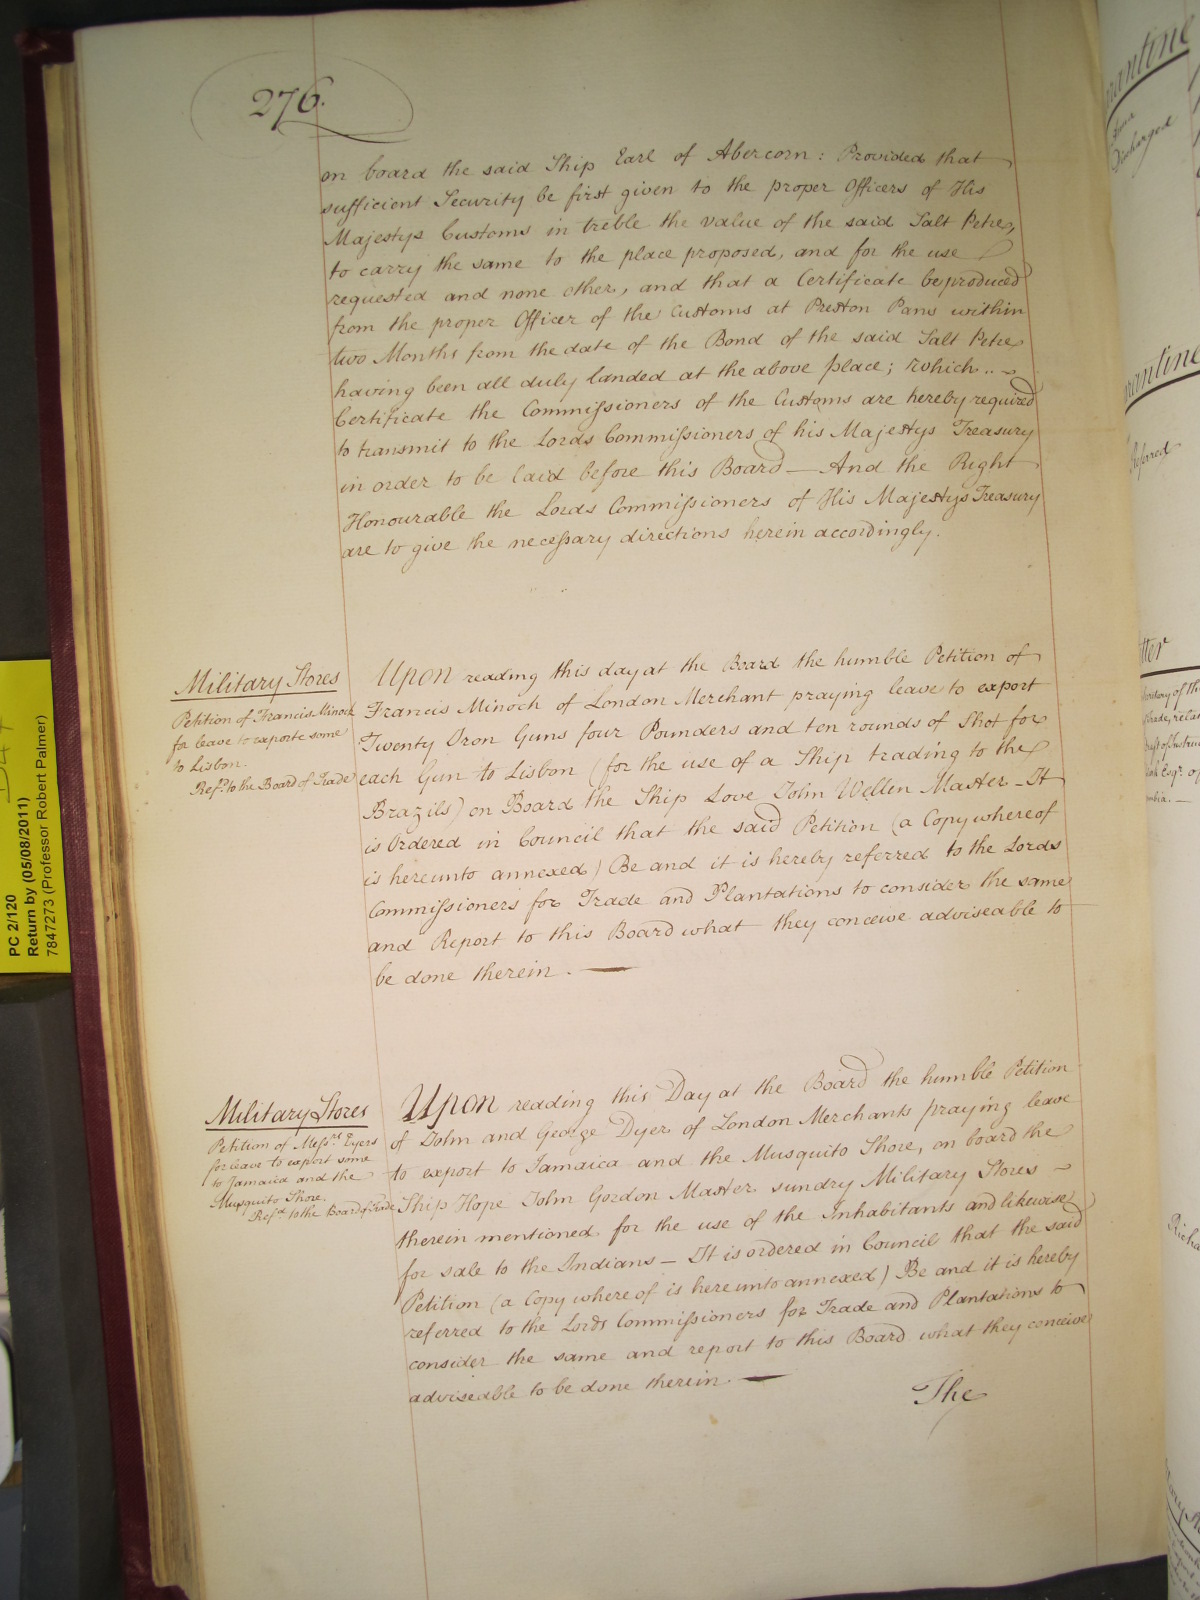 276.
on board the said Ship Earl of Abercorn: Provided that
sufficient Security be first given to the proper Officers of His
Majestys Customs in treble the value of the said Salt Petre,
to carry the same to the place proposed, and for the use
requested and none other, and that a Certificate be produced
from the proper Officer of the Customs at Preston Pans within
two Months from the date of the Bond of the said Salt Petre
having been all duly landed at the above place; which
Certificate the Commissioners of the Customs are hereby required
to transmit to the Lords Commissioners of his Majestys Treasury
in order to be laid before this Board — And the Right
Honourable the Lords Commissioners of His Majestys Treasury
are to give the necessary directions herein accordingly.
Military Stores
Petition of Francis Minoch
for leave to exporte some
to Lisbon.
Refd. to the Board of Trade
Upon reading this day at the Board the humble Petition of
Francis Minoch of London Merchant praying leave to export
Twenty Iron Guns four Pounders and ten rounds of Shot for
each Gun to Lisbon (for the use of a Ship trading to the
Brazils) on Board the Ship Love John Wellen Master - It
is Ordered in Council that the said Petition (a Copy whereof
is hereunto annexed) Be and it is hereby referred to the Lords
Commissioners for Trade and Plantations to consider the same
and Report to this Board what they conceive adviseable to
be done therein. —
Military Stores
Petition of Messrs. Dyers
for leave to export some
to Jamaica and the
Musquito Shore.
Refd. to the Board of Trade
Upon reading this Day at the Board the humble Petition
of John and George Dyer of London Merchants praying leave
to export to Jamaica and the Musquito Shore, on board the
Ship Hope John Gordon Master sundry Military Stores
therein mentioned for the use of the Inhabitants and likewise
for sale to the Indians — It is ordered in Council that the said
Petition (a Copy where of is hereunto annexed) Be and it is hereby
referred to the Lords Commissioners for Trade and Plantations to
consider the same and report to this Board what they conceive
adviseable to be done therein. —
The
PC 2/120
Return by (05/08/2011)
7847273 (Professor Robert Palmer)
Discharged